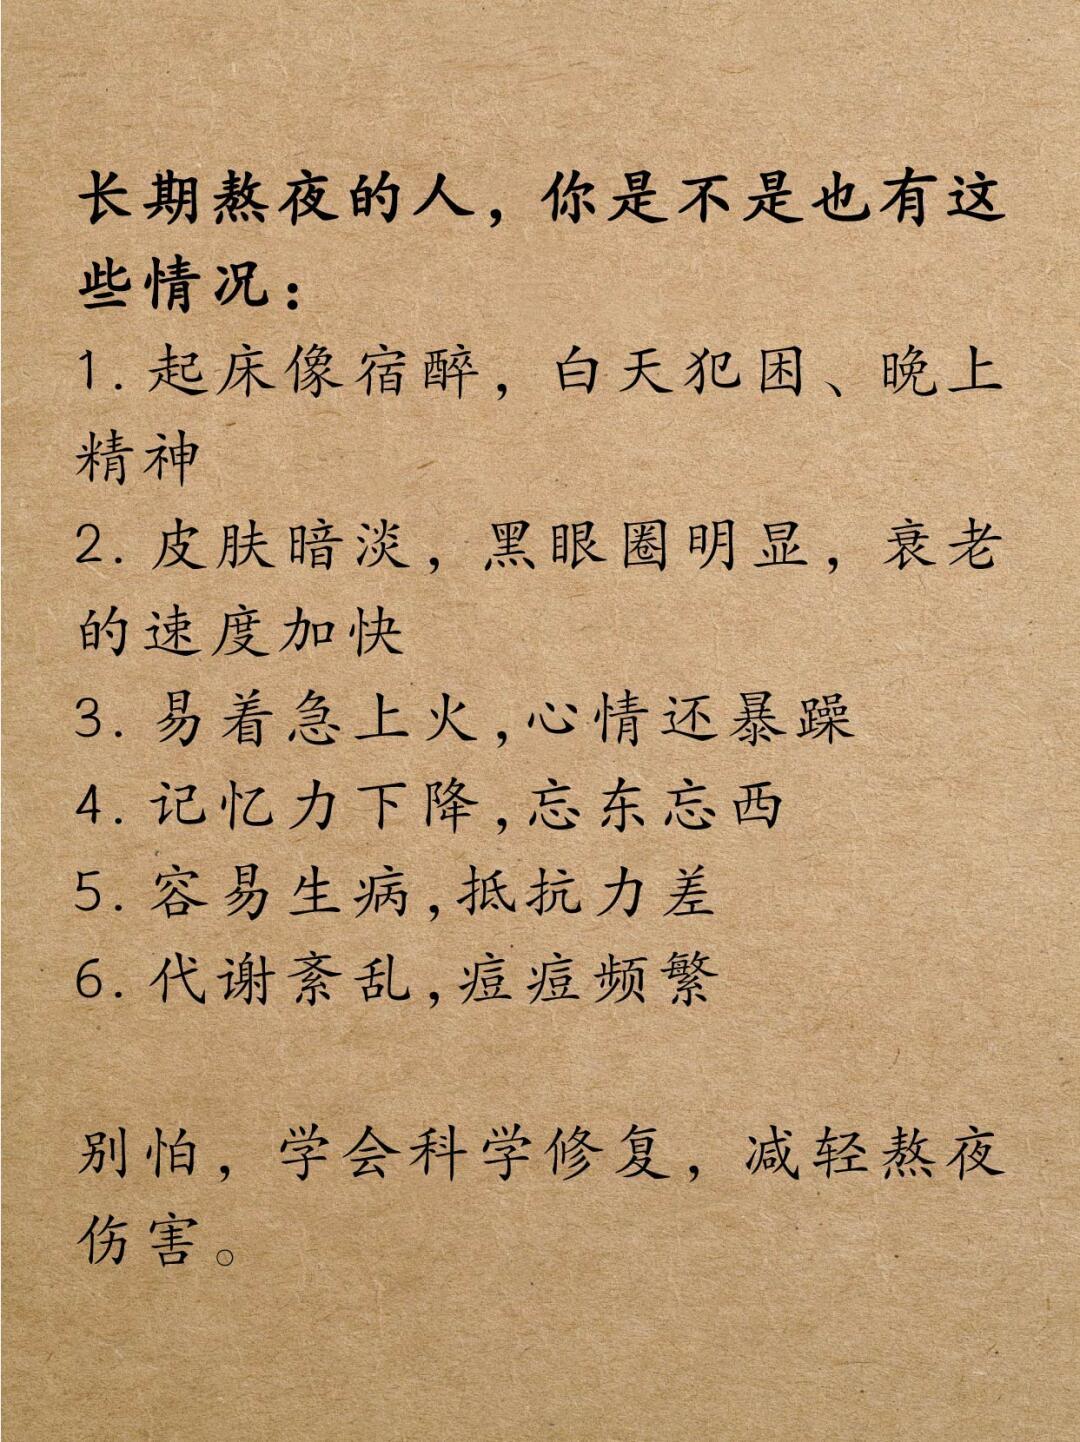 长期熬夜的人，你是不是也有这
些情况：
1. 起床像宿醉，白天犯困、晚上
精神
2. 皮肤暗淡，黑眼圈明显，衰老
的速度加快
3. 易着急上火,心情还暴躁
4. 记忆力下降,忘东忘西
5. 容易生病,抵抗力差
6. 代谢紊乱,痘痘频繁
别怕，学会科学修复，减轻熬夜
伤害。